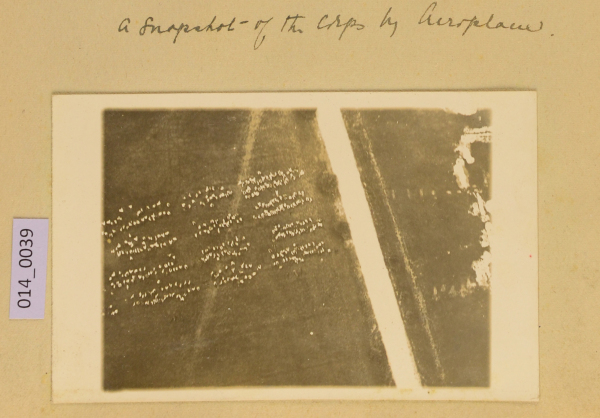 A Snapshot of the Corps by Aeroplane.
014_0039